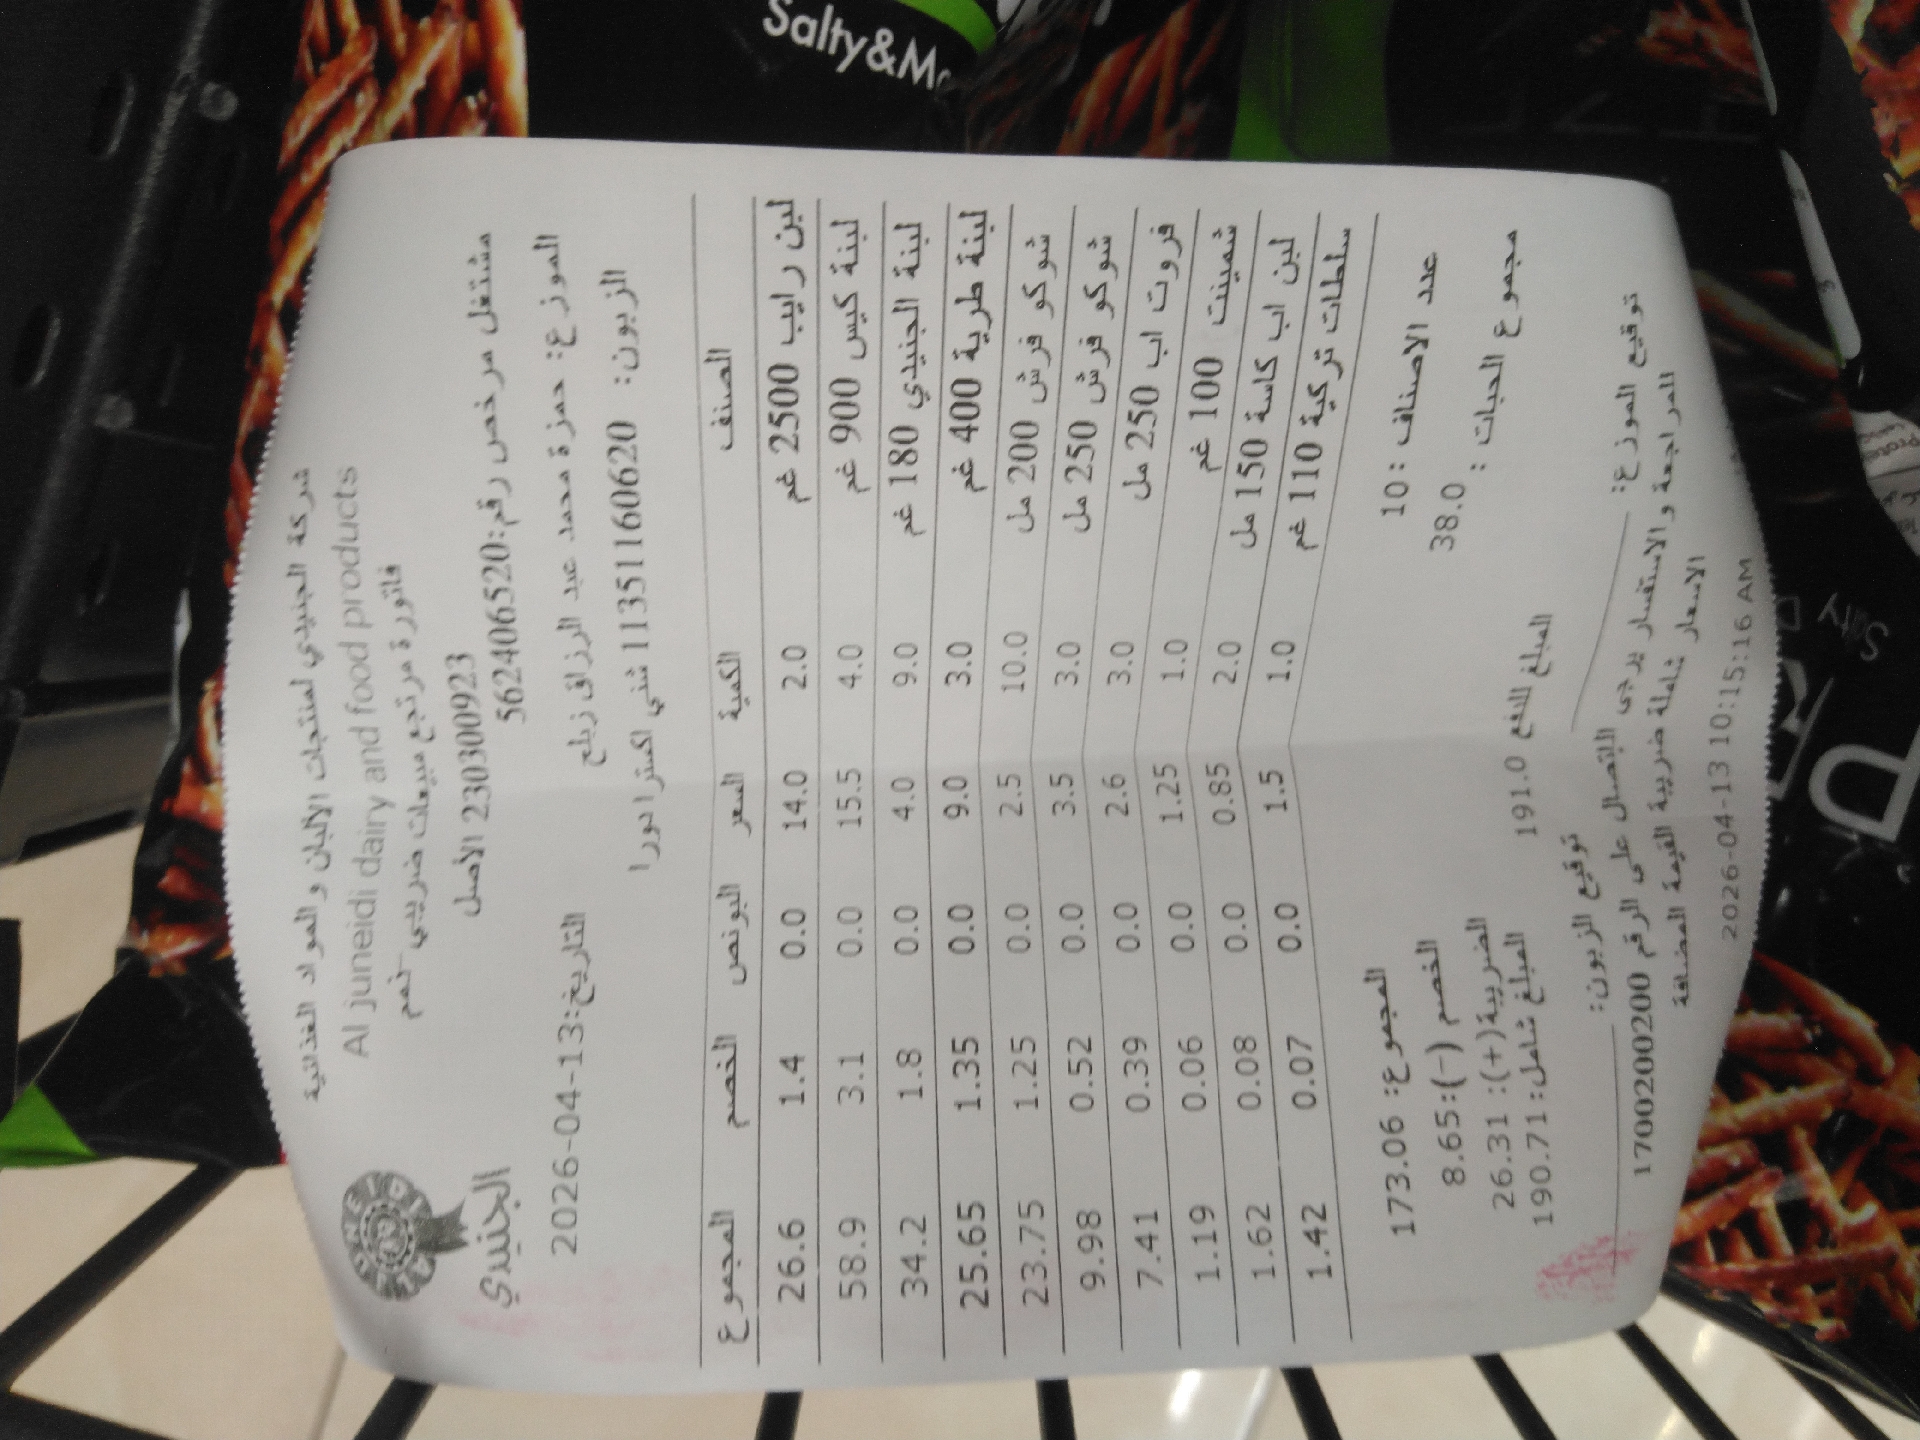 شركة الجنيدي لمنتجات الألبان والمواد الغذائية
Al juneidi dairy and food products
فاتورة مرتجع مبيعات ضريبي -نعم
230300923 الأصل
مشتغل مرخص رقم:562406520
الجنيدي
الموزع: حمزة محمد عبد الرزاق زبلح
التاريخ:2026-04-13
الزبون: 11351160620 شني اكسترا دورا
الصنف الكمية السعر البونص الخصم المجموع
لبن رايب 2500 غم 2.0 14.0 0.0 1.4 26.6
لبنة كيس 900 غم 4.0 15.5 0.0 3.1 58.9
لبنة الجنيدي 180 غم 9.0 4.0 0.0 1.8 34.2
لبنة طرية 400 غم 3.0 9.0 0.0 1.35 25.65
شوكو فرش 200 مل 10.0 2.5 0.0 1.25 23.75
شوكو فرش 250 مل 3.0 3.5 0.0 0.52 9.98
فروت اب 250 مل 3.0 2.6 0.0 0.39 7.41
شمينت 100 غم 1.0 1.25 0.0 0.06 1.19
لبن اب كاسة 150 مل 2.0 0.85 0.0 0.08 1.62
سلطات تركية 110 غم 1.0 1.5 0.0 0.07 1.42
عدد الاصناف : 10
المجموع: 173.06
مجموع الحبات : 38.0
الخصم (-):8.65
الضريبة(+): 26.31
المبلغ للدفع 191.0
المبلغ شامل: 190.71
توقيع الموزع:
توقيع الزبون:
للمراجعة والاستفسار يرجى الاتصال على الرقم 1700200200
الاسعار شاملة ضريبة القيمة المضافة
2026-04-13 10:15:16 AM
Salty&M
Salty